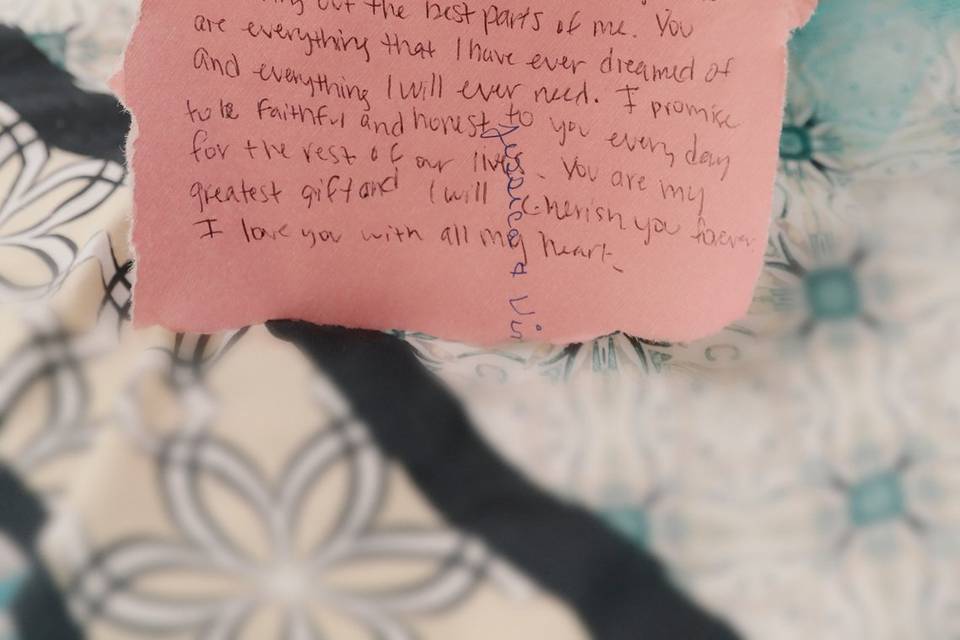 out the best parts of me. You
are everything that I have ever dreamed of
and everything I will ever need. I promise
to be faithful and honest to you every day
for the rest of our lives. You are my
greatest gift and I will cherish you forever.
I love you with all my heart.
Jessica &